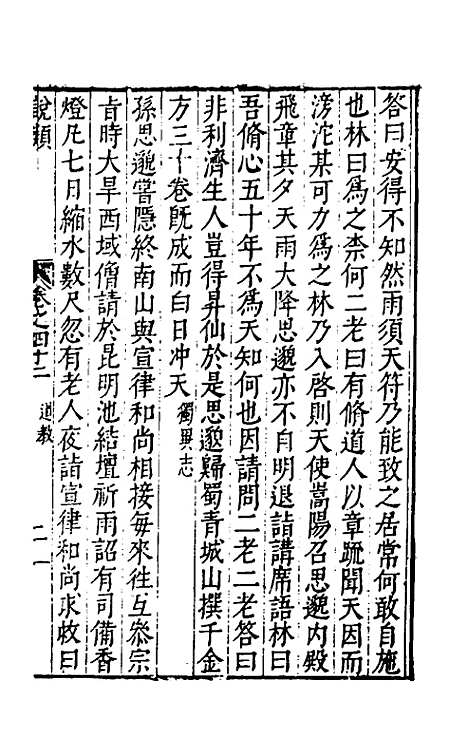 答曰安得不知然雨須天符乃能致之居常何敢自施
也林曰爲之柰何二老曰有脩道人以章䟽聞天因而
滂沱某可力爲之林乃入啓則天使嵩陽召思邈内殿
飛章其夕天雨大降思邈亦不自明退詣講席語林曰
吾脩心五十年不爲天知何也因請問二老二老答曰
非利濟生人豈得昇仙於是思邈歸蜀青城山撰千金
方三十卷既成而白日冲天獨異志
孫思邈嘗隱終南山與宣律和尚相接每來往互叅宗
旨時大旱西域僧請於昆明池結壇祈雨詔有司備香
燈凡七日縮水數尺忽有老人夜詣宣律和尚求救曰
說類 卷之四十二 道教